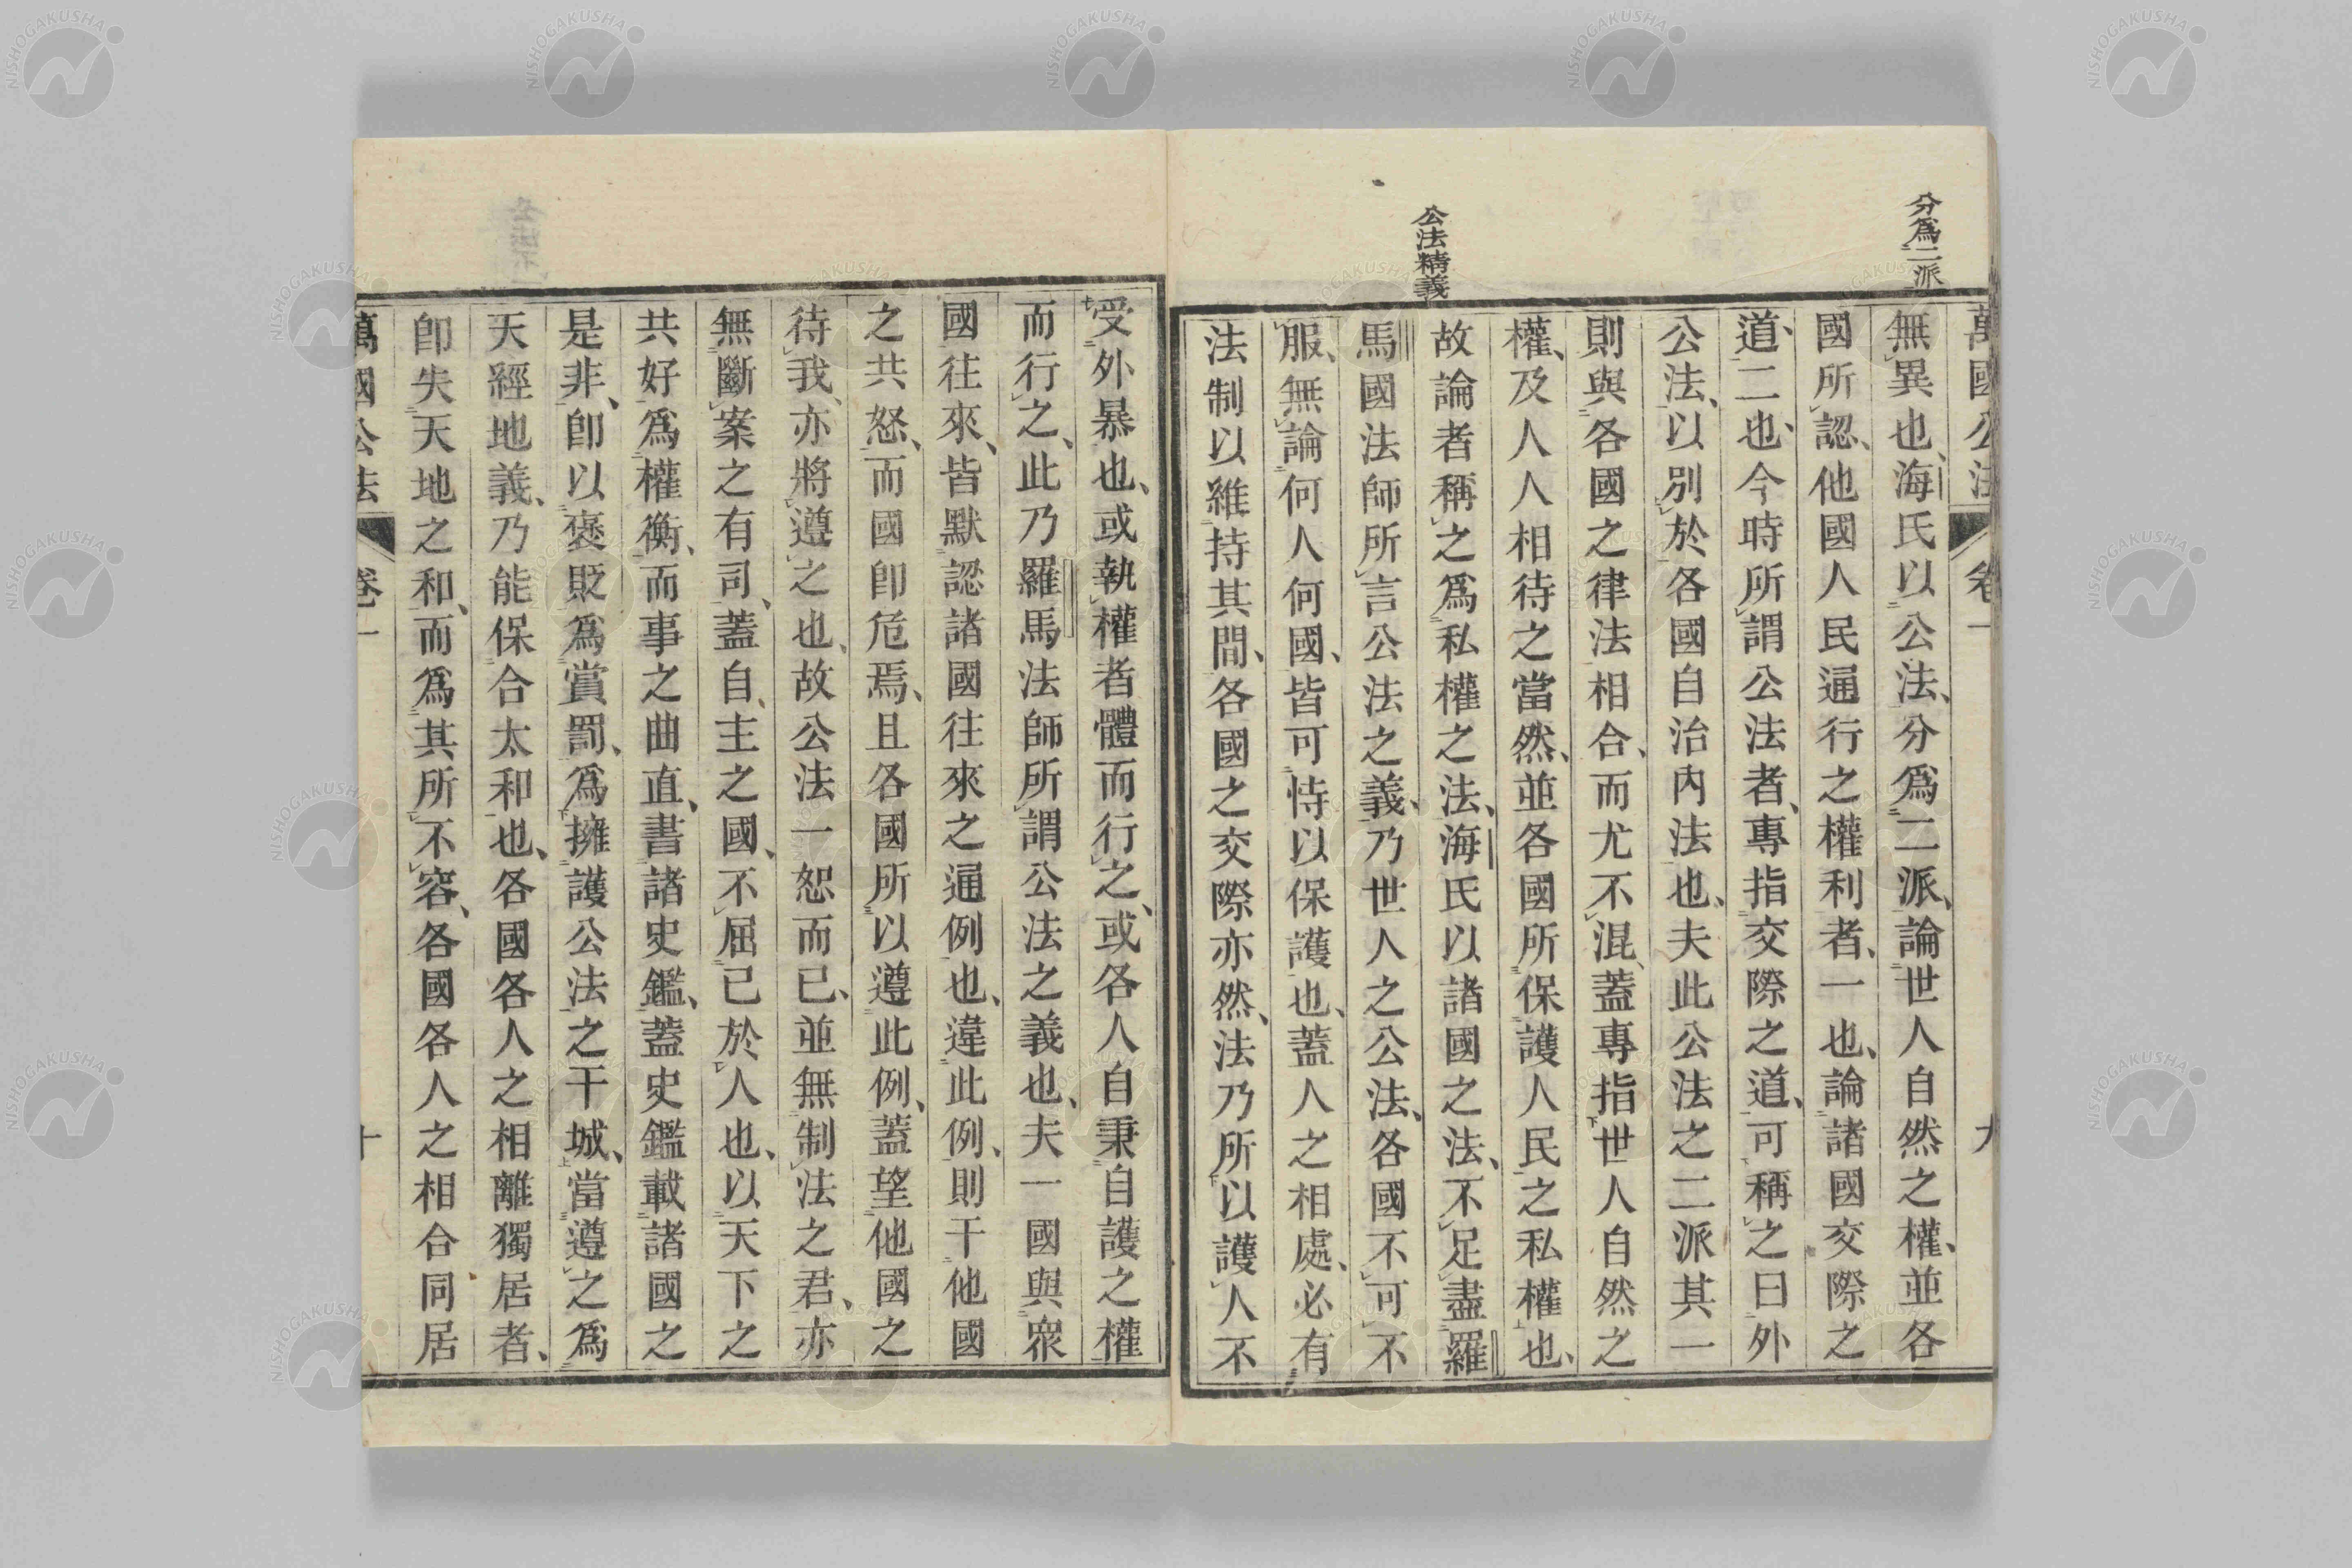 分爲二派
公法精義
萬國公法 卷一 九
無異也、海氏以公法、分爲二派、論世人自然之權、並各
國所認、他國人民通行之權利者、一也、論諸國交際之
道、二也、今時所謂公法者、專指交際之道、可稱之曰外
公法、以別於各國自治內法也、夫此公法之二派其一
則與各國之律法相合、而尤不混、蓋專指世人自然之
權、及人人相待之當然、並各國所保護人民之私權也、
故論者稱之爲私權之法、海氏以諸國之法、不足盡羅
馬國法師所言公法之義、乃世人之公法、各國不可不
服、無論何人何國、皆可恃以保護也、蓋人之相處、必有
法制以維持其間、各國之交際亦然、法乃所以護人不
受外暴也、或執權者體而行之、或各人自秉自護之權
而行之、此乃羅馬法師所謂公法之義也、夫一國與衆
國往來、皆默認諸國往來之通例也、違此例、則干他國
之共怒、而國卽危焉、且各國所以遵此例、蓋望他國之
待我、亦將遵之也、故公法一恕而已、並無制法之君、亦
無斷案之有司、蓋自主之國、不屈已於人也、以天下之
共好爲權衡、而事之曲直、書諸史鑑、蓋史鑑載諸國之
是非、卽以褒貶爲賞罰、爲擁護公法之干城、當遵之爲
天經地義、乃能保合太和也、各國各人之相離獨居者、
卽失天地之和、而爲其所不容、各國各人之相合同居
萬國公法 卷一 十
NISHOGAKUSHA